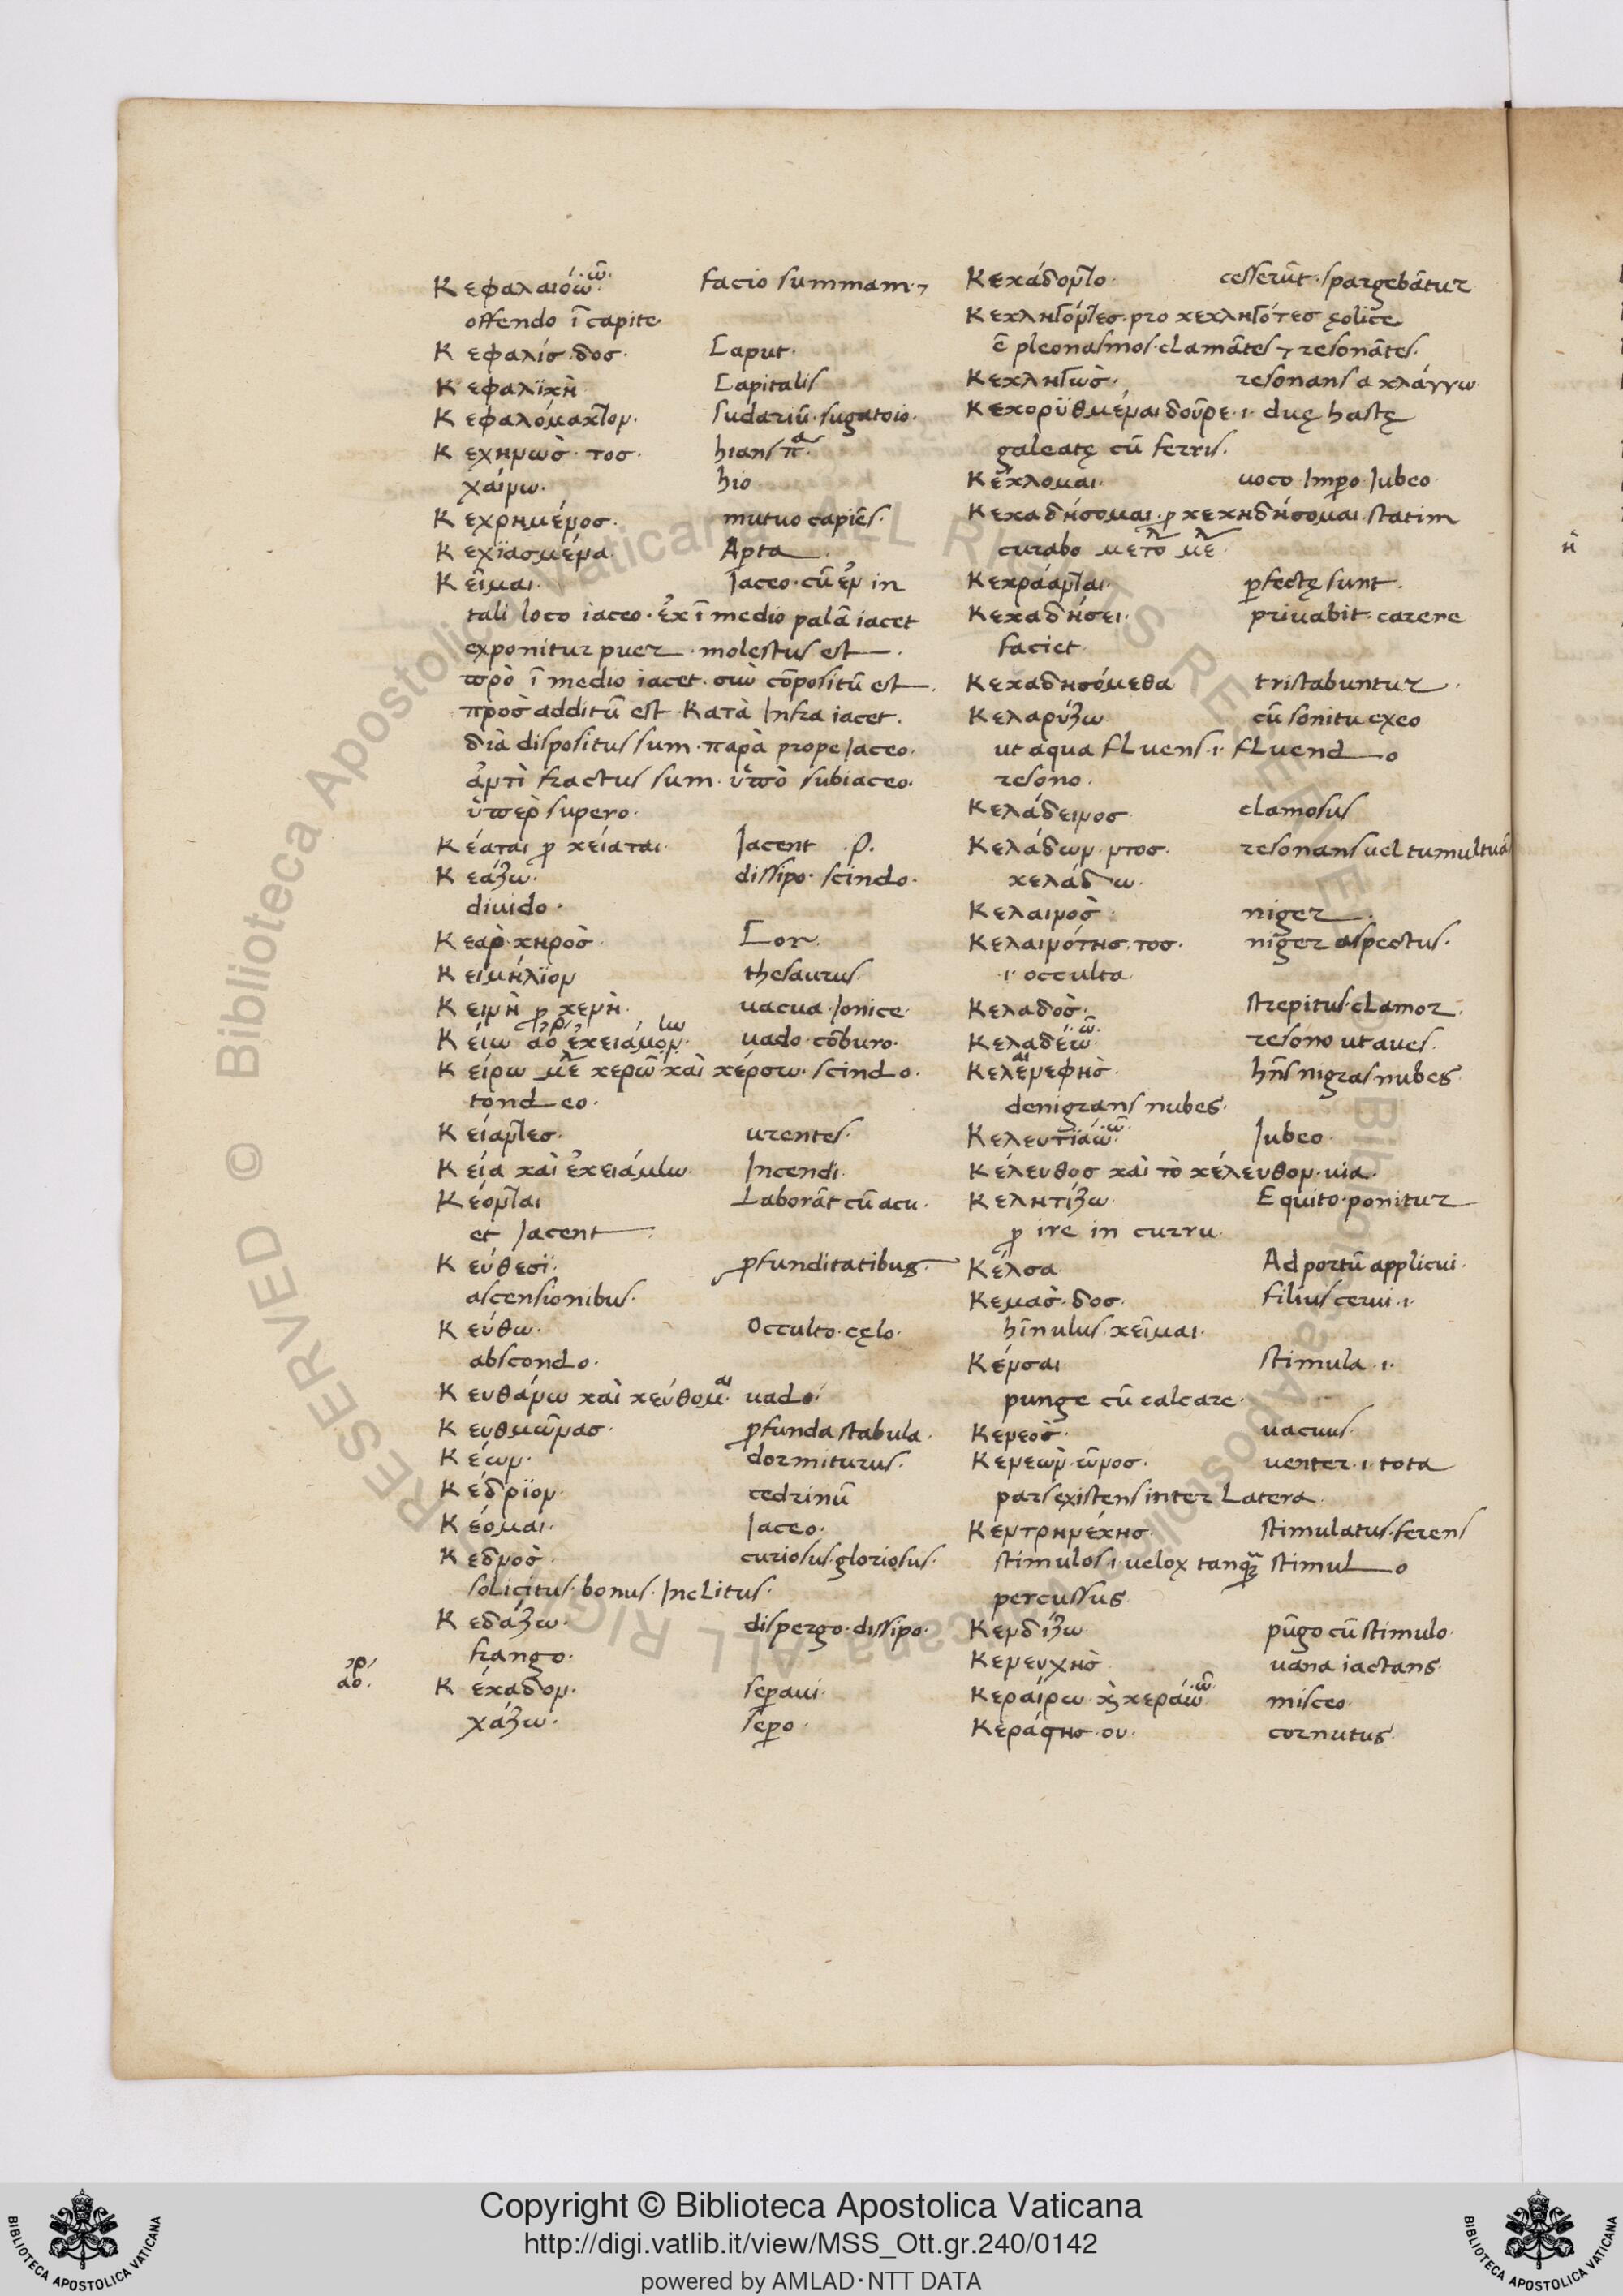 Κεφαλαιόω. ῶ. facio summam. ⁊
offendo ī capite
Κεφαλίσ. δοσ. Caput.
Κεφαλϊκὴ Capitalis
Κεφαλόμακτον. sudariū. sugatoio.
Κεχηνωσ̀. τοσ. hians
χαίνω. hio.
Κεχρημένοσ. mutuo capiēs.
Κεχϊασμένα Apta.
Κεῖμαι. Jaceo. cū ἐν in
tali loco iaceo. ἐκ ī medio palā iacet
exponitur puer. molestus est.
πρὸ ī medio iacet. σὺν cōpositū est.
πρὸσ additū est. Κατὰ Infra iacet.
διὰ dispositus sum. παρὰ prope Jaceo.
ἀντὶ fractus sum. ὑπὸ subiaceo.
ὑπερ̀ supero.
Κέαται ꝓ κείαται. Jacent. p.
Κεάζω. dissipo. scindo.
diuido.
Κεαρ̀. κηροσ̀. Cor.
Κειμήλϊον thesaurus
Κεινὴ ꝓ κενὴ. uacua. Jonice.
Κείω ἐκειάμην. uado. cōburo.
Κείρω κερῶ καὶ κέρσω. scindo.
tondeo.
Κείαντεσ. urentes.
Κεία καὶ ἐκειάμην. Incendi.
Κέονται Laborāt cū acu.
et Jacent.
Κεύθεσϊ. ꝓfunditatibus.
ascensionibus.
Κεύθω. Occulto. cęlo.
abscondo.
Κευθάνω καὶ κεύθομαι. uado.
Κευθμῶνασ. ꝓfunda stabula.
Κέων. dormiturus.
Κέδρϊον. cedrinū
Κέομαι. Jaceo.
Κεδνοσ̀. curiosus. gloriosus.
solicitus. bonus. Inclitus.
Κεδάζω. dispergo. dissipo.
frango.
ἀό. Κέκαδον. sep̱aui.
χάζω. sep̱o.
Κεκάδοντο. cesserūt. spargebātur
Κεκλητόντεσ. pro κεκλητότεσ ęolice
ē pleonasmos. clamātes ⁊ resonātes.
Κεκλητωσ̀. resonans a κλάγγω.
Κεκορϋθμέναι δοῦρε. ι. duę hastę
galeatę cū ferris.
Κέκλομαι. uoco Imp̱o Jubeo.
Κεκαδήσομαι. ꝓ κεκηδήσομαι. statim
curabo μετ' ὀ μέ.
Κεκράανται. p̱fectę sunt.
Κεκαδήσει. priuabit. carere
faciet.
Κεκαδησόμεθα tristabuntur.
Κελαρύζω cū sonitu exeo
ut aqua fluens. ι. fluendo
resono.
Κελάδεινοσ clamosus
Κελάδων. ντοσ. resonans uel tumultuās
κελάδω.
Κελαινοσ̀. niger.
Κελαινότησ. τοσ. niger aspectus.
.ι. occulta.
Κελαδοσ̀. strepitus. clamor.
Κελαδέω. ῶ. resono ut aues.
Κελαινεφησ̀. hn̄s nigras nubes.
denigrans nubes.
Κελευτϊάω. ῶ. Jubeo.
Κέλευθοσ καὶ τὸ κέλευθον. uia.
Κελητίζω. Equito. ponitur
ꝓ ire in curru.
Κέλσα Ad portū applicui.
Κεμασ̀. δοσ. filius cerui. ι.
hīnulus. κεῖμαι.
Κένσαι stimula. ι.
punge cū calcare.
Κενεοσ̀. uacuus.
Κενεων̀. ῶνοσ. uenter. ι. tota
pars existens inter Latera.
Κεντρηνέκησ. stimulatus. ferens
stimulos. ι. uelox tanꝗ stimulo
percussus.
Κενδίζω pūgo cū stimulo.
Κενευχησ̀. uana iactans.
Κεραίρω. κὶ κεράω. ῶ. misceo.
Κεράστησ. ου. cornutus.
Copyright © Biblioteca Apostolica Vaticana
http://digi.vatlib.it/view/MSS_Ott.gr.240/0142
powered by AMLAD·NTT DATA